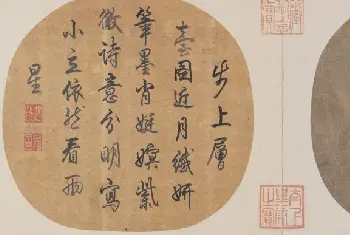 步上層
臺圖近月纖妍
筆墨肖嫇紫
微詩意分明寫
小立依然看兩
星